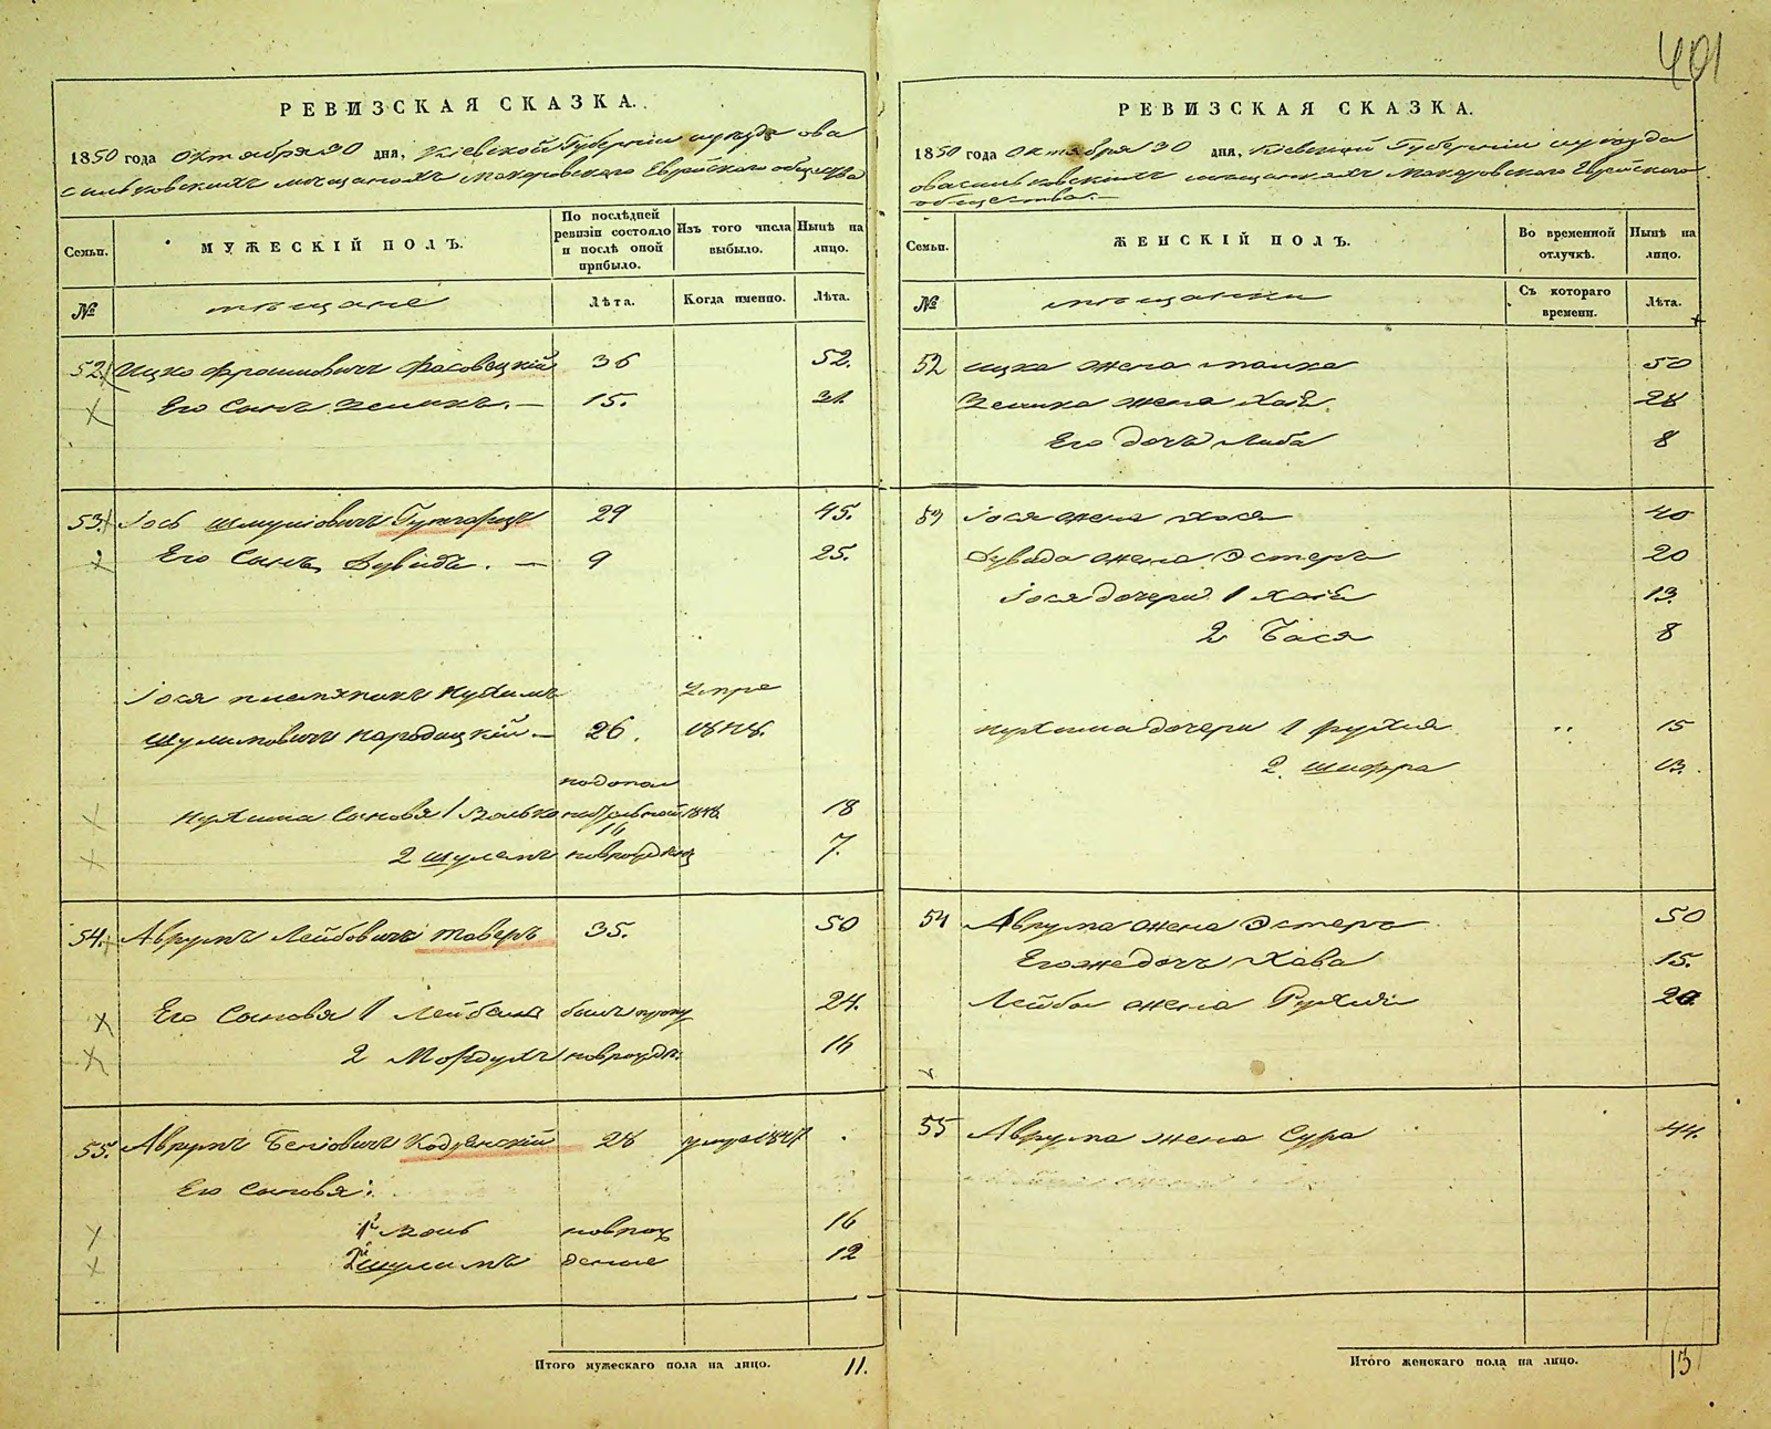 401
РЕВИЗСКАЯ СКАЗКА.
1850 года Октября 30 дня, Кіевской Губерніи
мещанохъ Макаровского Еврейского общества
Семьи.
МУЖЕСКІЙ ПОЛЪ.
По послѣдней ревизіи состояло и послѣ оной прибыло.
Изъ того числа выбыло.
Нынѣ на лицо.
№
мещане
Лѣта.
Когда именно.
Лѣта.
52. Ицко Фроимовичъ Фасовецкій 36 52.
Его Сынъ Зеликъ. — 15. 31.
53. Іось Шмуліовичъ 29 45.
Его Сынъ Дувидъ. — 9 25.
Іося племяникъ Нухимъ
Шулимовичъ Народицкій — 26.
Нухима Сыновя 1 Волько 1848 18
16
2 Шулемъ 7.
54. Аврумъ Лейбовичъ Таверъ 35. 50
Его Сыновя 1 Лейба былъ 24.
2 Мордухъ 16
55. Аврумъ Беніовичъ Кодрянскій 28 1847
Его Сыновя:
1й новрож 16
2й Шулимъ деные 12
Итого мужескаго пола на лицо. 11.
РЕВИЗСКАЯ СКАЗКА.
1850 года Октября 30 дня, Кіевской Губерніи
мещанкахъ Макаровского Еврейского
общества. —
Семьи.
ЖЕНСКІЙ ПОЛЪ.
Во временной отлучкѣ.
Нынѣ на лицо.
№
мещанки
Съ котораго времени.
Лѣта.
52 Ицка жена Малка 50
Зелика жена Хая 28
Его дочь Либа 8
53 Іося жена Хася 40
Дувида жена Эстеръ 20
Іося дочери 1 Хая 13.
2 Бася 8
Нухима дочери 1 Рухля 15
2. Шифра 13.
54 Аврума жена Эстеръ 50
Егожедочь Хава 15.
Лейбы жена Рухля 20
55 Аврума жена Сура 44.
Итого женскаго пола на лицо. 13